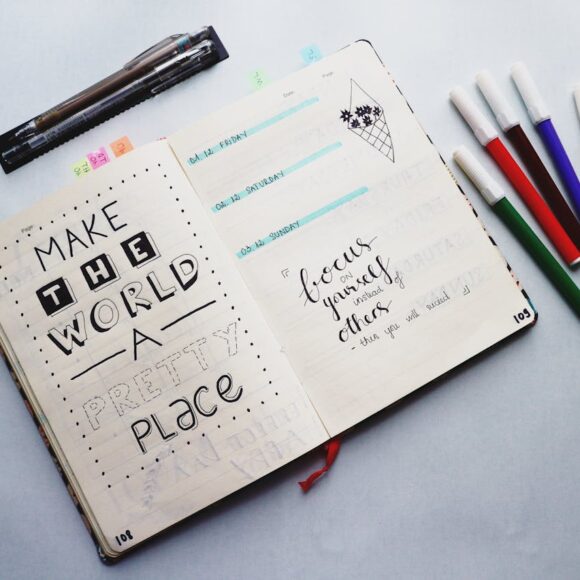 Page
MAKE
THE
WORLD
A
PRETTY
PLACE
108
Date
Page
01.12 FRIDAY
02.12 SATURDAY
03.12 SUNDAY
focus
ON
yourself
instead of
others
- then you will succeed
109